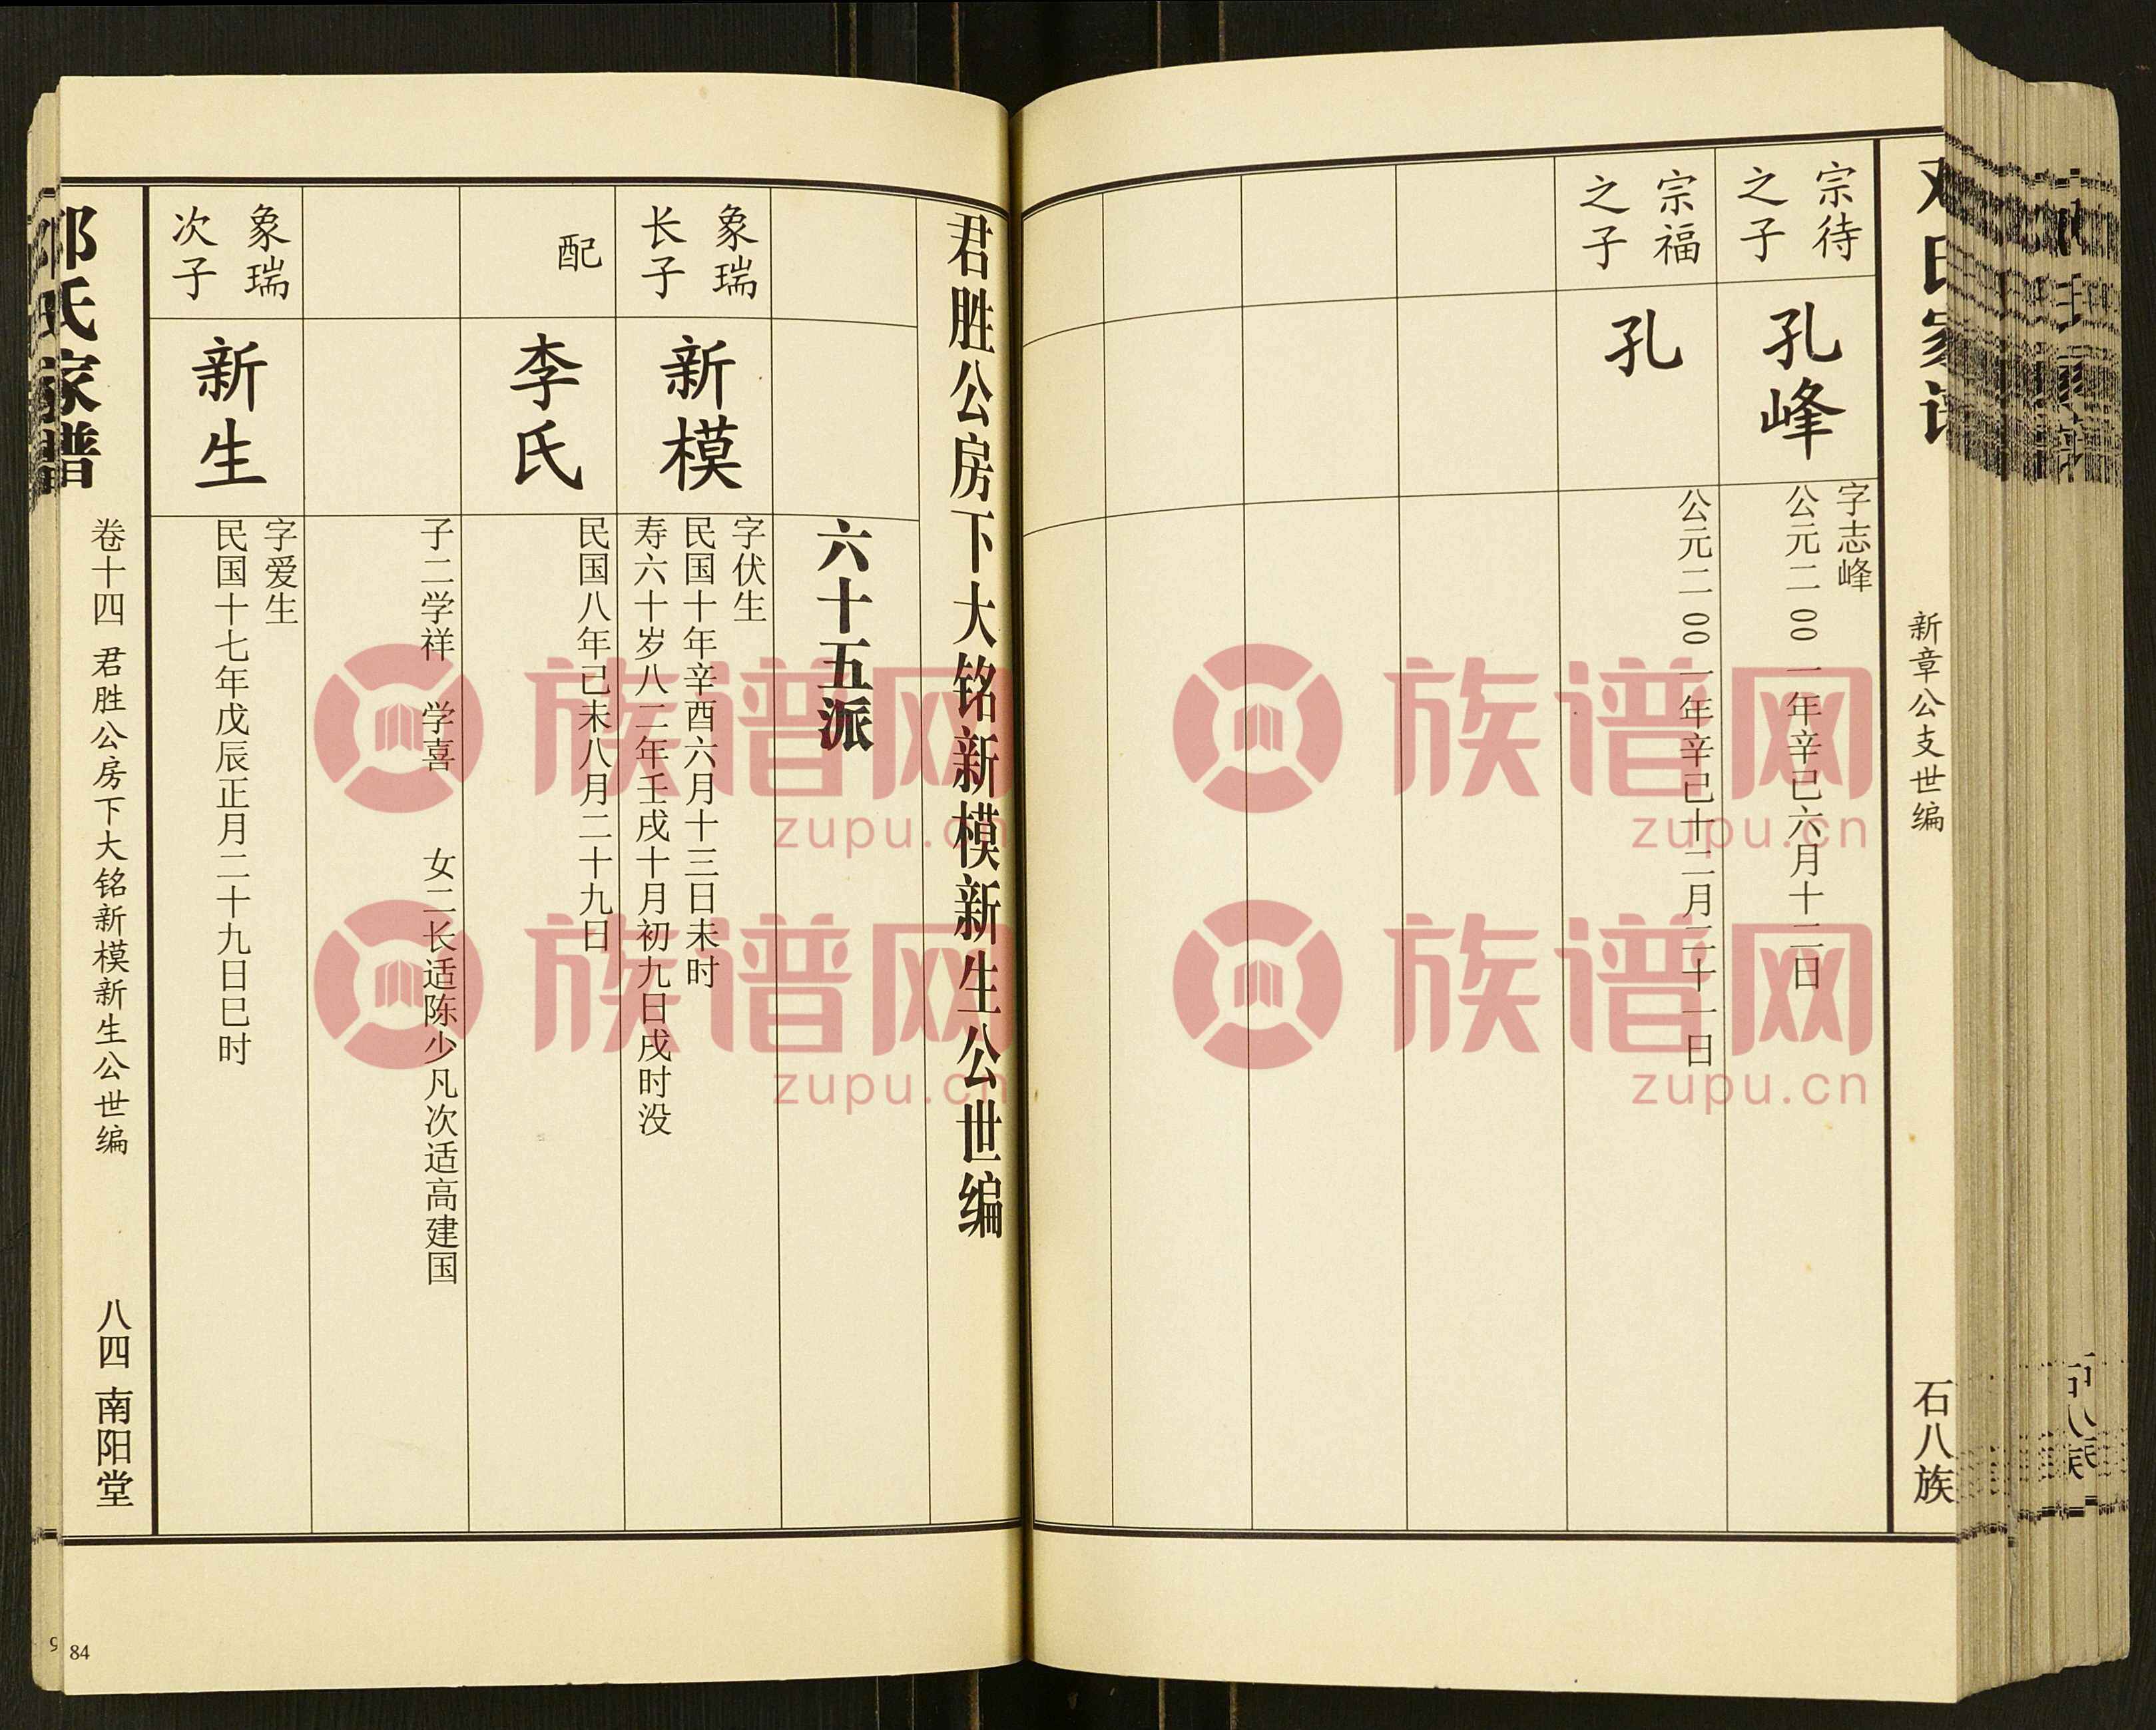 邓氏家谱
新章公支世编
石八族
宗待
之子
孔峰
字志峰
公元二00一年辛巳六月十二日
宗福
之子
孔
公元二00一年辛巳十二月二十一日
君胜公房下大铭新模新生公世编
六十五派
象瑞
长子
新模
字伏生
民国十年辛酉六月十三日未时
寿六十岁八二年壬戌十月初九日戌时没
配
李氏
民国八年己未八月二十九日
子二学祥 学喜 女二长适陈少凡次适高建国
象瑞
次子
新生
字爱生
民国十七年戊辰正月二十九日巳时
邓氏家谱
卷十四 君胜公房下大铭新模新生公世编
八四 南阳堂
84
族谱网
zupu.cn
族谱网
zupu.cn
族谱网
zupu.cn
族谱网
zupu.cn